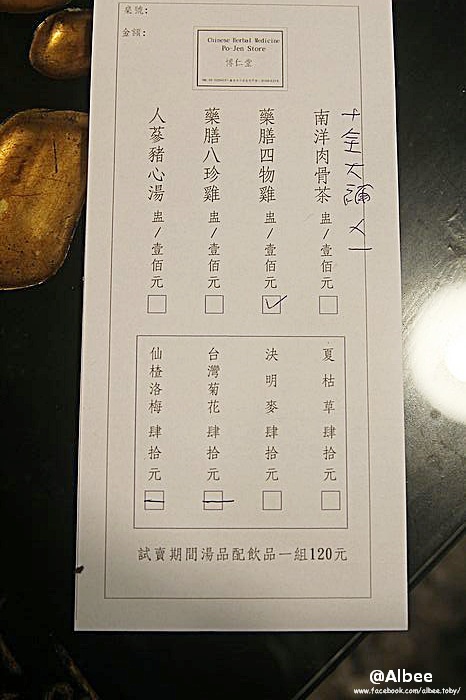 桌號:
金額:
Chinese Herbal Medicine
Po-Jen Store
博仁堂
十全大補 X一
南洋肉骨茶 盅/壹佰元
藥膳四物雞 盅/壹佰元
藥膳八珍雞 盅/壹佰元
人蔘豬心湯 盅/壹佰元
夏枯草 肆拾元
決明麥 肆拾元
台灣菊花 肆拾元
仙楂洛梅 肆拾元
試賣期間湯品配飲品一組120元
@Albee
www.facebook.com/albee.toby/